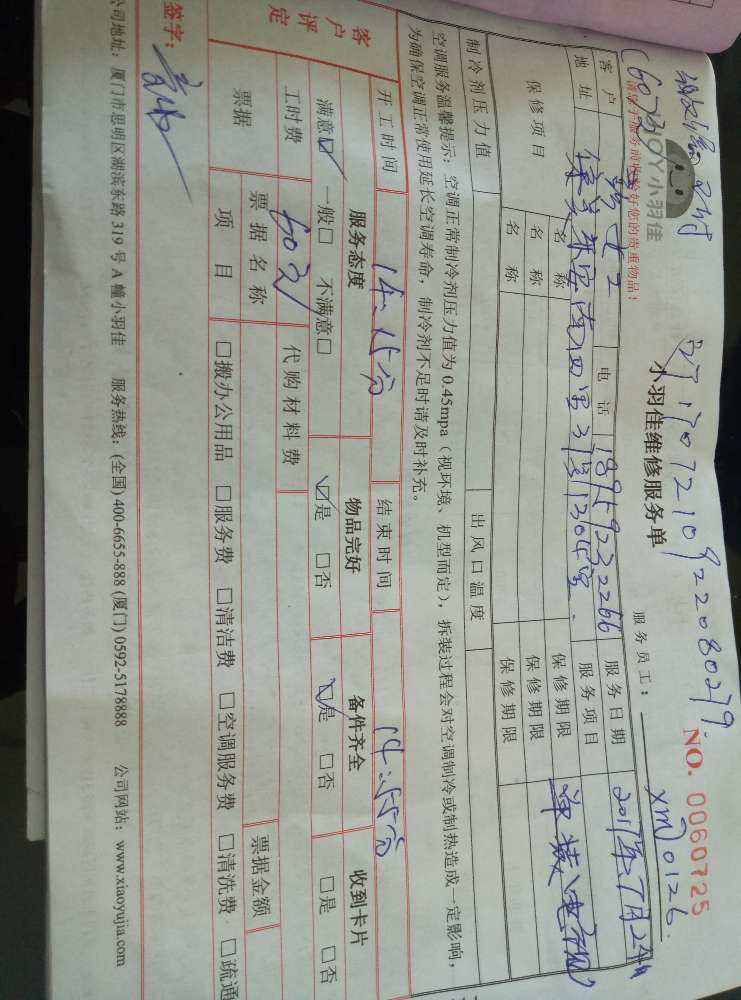 XIAOYUJIAOY小羽佳
请您于服务前收拾好您的贵重物品！
1707210922080279
小羽佳维修服务单
NO. 0060725
服务员工：xm0126
客户 电话 18959232266 服务日期 2017年7月24日
地址 服务项目
保修项目 名称 保修期限
名称 保修期限
名称 保修期限
制冷剂压力值 出风口温度
空调服务温馨提示：空调正常制冷剂压力值为0.45mpa（视环境、机型而定），拆装过程会对空调制冷或制热造成一定影响，
为确保空调正常使用延长空调寿命，制冷剂不足时请及时补充。
开工时间 14:15分 结束时间 14:55分
客户评定 服务态度 物品完好 备件齐全 收到卡片
满意☑ 一般□ 不满意□ ☑是 □否 ☑是 □否 □是 □否
工时费 60元 代购材料费
票据 票据名称 票据金额
项目 □搬办公用品 □服务费 □清洁费 □空调服务费 □清洗费 □疏通
签字：
公司地址：厦门市思明区湖滨东路319号A幢小羽佳 服务热线：(全国)400-6655-888 (厦门)0592-5178888 公司网站：www.xiaoyujia.com